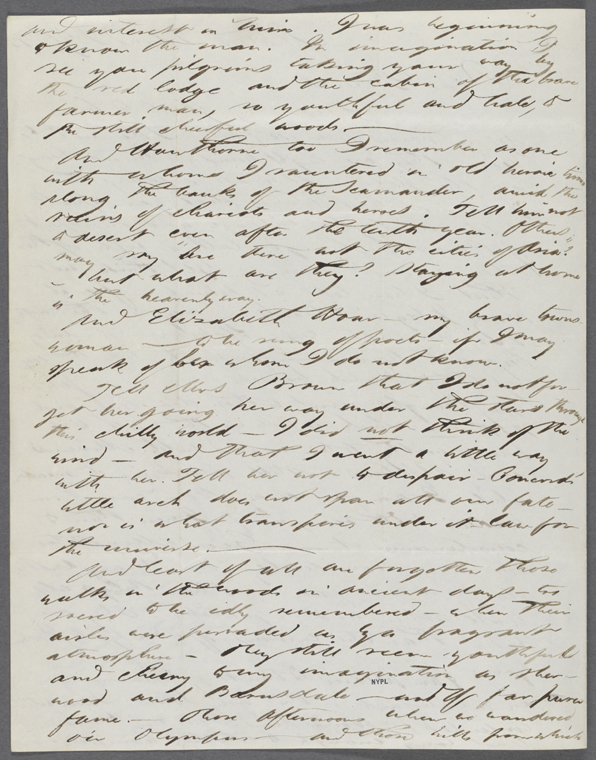 and interest in him. I was beginning
to know the man. In imagination I
see you pilgrims taking your way by
the red lodge and the cabin of the brave
farmer man, so youthful and hale, to
the still cheerful woods —
And Hawthorne too I remember as one
with whom I sauntered in old heroic times
along the banks of the Scamander, amid the
ruins of chariots and heroes. Tell him not
to desert even after the tenth year. Others
may say "Are there not the cities of Asia?"
— but what are they? Staying at home
is the heavenly way.
And Elizabeth Hoar — my brave towns-
woman — to be sung of poets — if I may
speak of her whom I do not know.
Tell Mrs Brown that I do not for-
get her going her way under the stars through
this chilly world — I did not think of the
wind — and that I went a little way
with her. Tell her not to despair — Concord's
little arch does not span all our fate —
nor is what transpires under it law for
the universe. —
And least of all are forgotten those
walks in the woods in ancient days — too
sacred to be idly remembered — when their
aisles were pervaded as by a fragrant
atmosphere — They still seem youthful
and cheery to my imagination as Sher-
wood and Barnsdale — and of far purer
fame. — Those afternoons when we wandered
o'er Olympus — and those hills from which
NYPL